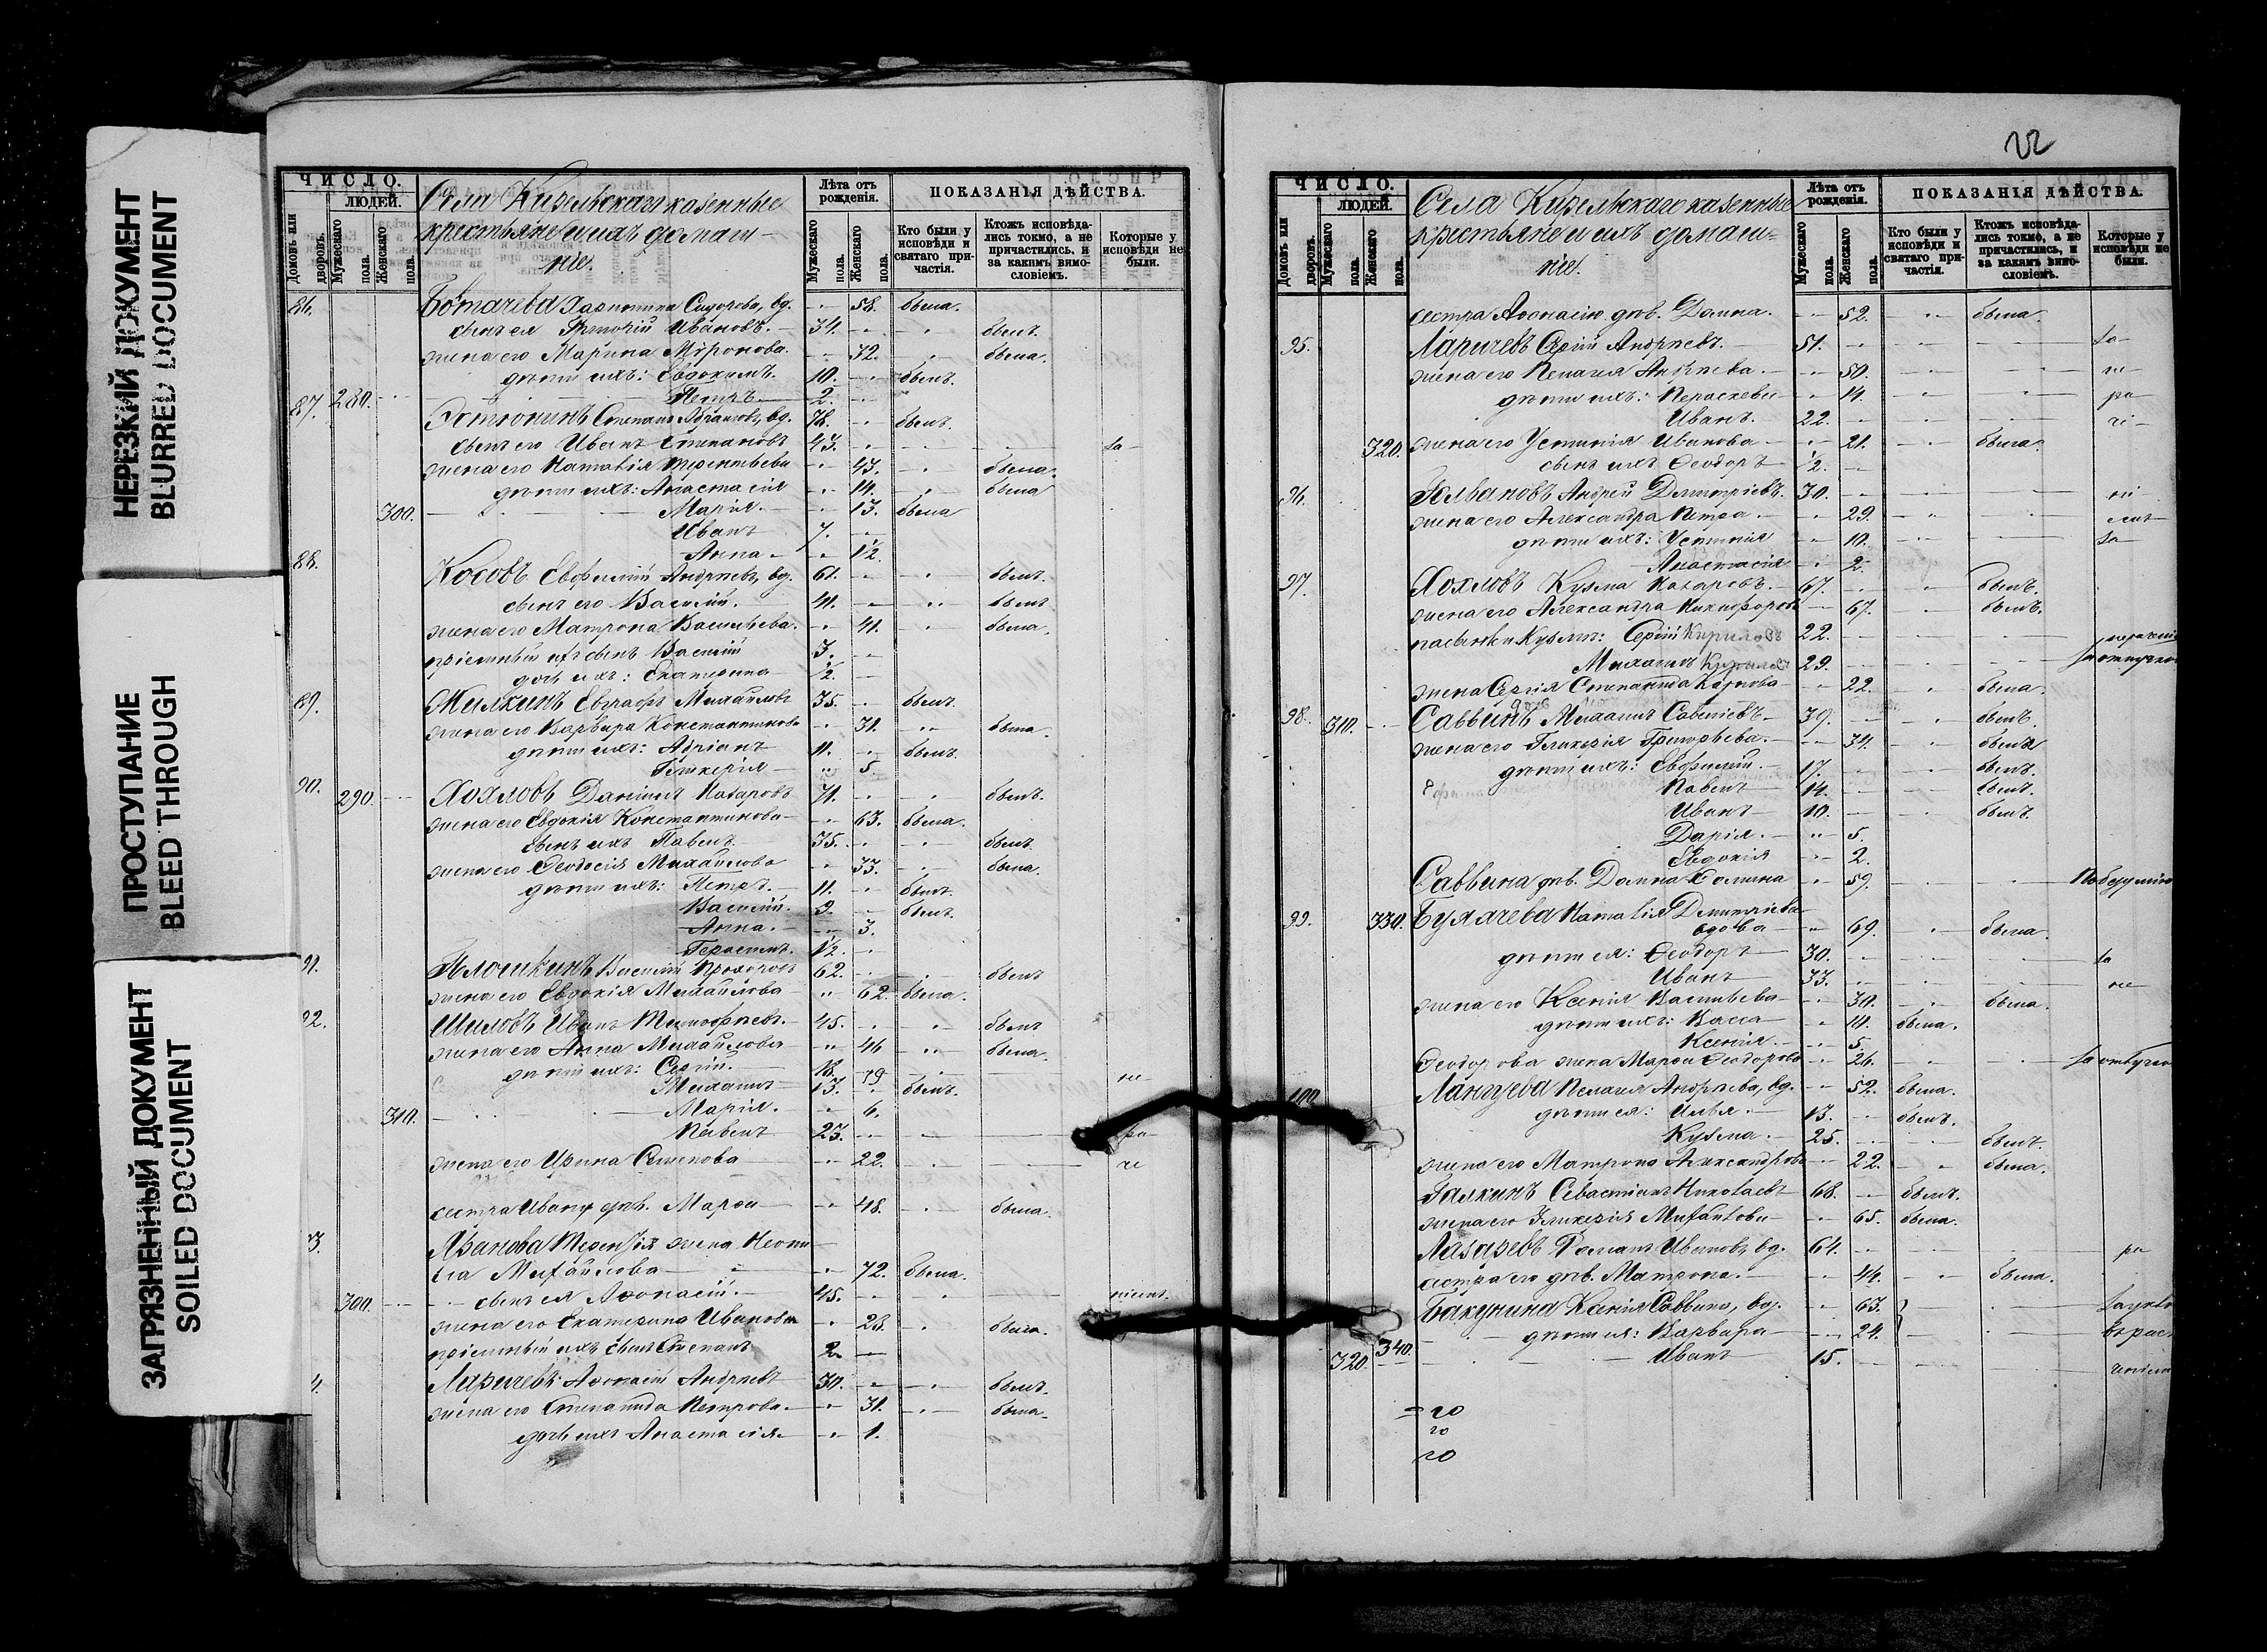 НЕРЕЗКИЙ ДОКУМЕНТ
BLURRED DOCUMENT
ПРОСТУПАНИЕ
BLEED THROUGH
ЗАГРЯЗНЕННЫЙ ДОКУМЕНТ
SOILED DOCUMENT
ЧИСЛО.
ЛЮДЕЙ.
Домовъ или дворовъ.
Мужескаго пола.
Женскаго пола.
Села Кизельскаго казенные
крестьяне и ихъ домаш-
ніе.
Лѣта отъ рожденія.
Мужескаго пола.
Женскаго пола.
ПОКАЗАНІЯ ДѢЙСТВА.
Кто были у исповѣди и святаго причастія.
Ктожъ исповѣдались токмо, а не причастились, и за какимъ винословіемъ.
Которые у исповѣди не были.
86. Ботачева Сидорова, вд. 58. была.
сынъ ея Ивановъ. 34. былъ.
жена его Марина Миронова. 32. была.
дѣти ихъ: Евдокимъ. 10. былъ.
280. Петръ. 2.
87. Степанъ вд. 78. былъ.
сынъ его Иванъ Степановъ 43. за
жена его Наталія Терентьева 43. была.
дѣти ихъ: Анастасія 14. была
300. Марія. 13. была
Иванъ 7.
Анна. 1/2
88. Косовъ Евфимій Андреевъ, вд. 61. былъ.
сынъ его Василій. 41. былъ
жена его Матрона Васильева. 41. была.
пріемный ихъ сынъ Василій 3.
дочь ихъ: Екатерина 1/2.
89. Жилкинъ Евграфъ Михайловъ 35. былъ.
жена его Варвара Константинова 31. была.
дѣти ихъ: Адріанъ 11. былъ.
Гликерія 5.
90. 290. Хохловъ Даніилъ Назаровъ 71. былъ.
жена его Евдокія Константинова 63. была.
сынъ ихъ Павелъ. 35. былъ
жена его Ѳеодосія Михайлова 33. была.
дѣти ихъ: Петръ. 11. былъ.
Василій. 9. былъ.
Анна. 3.
Герасимъ. 1/2.
91. Василій Прохоровъ 62. былъ
жена его Евдокія Михайлова 62. была.
92. Шиловъ Иванъ Тимофеевъ. 45. былъ
жена его Анна Михайлова 46 была.
дѣти ихъ: Сергій. 18. не
Михаилъ 13. былъ.
310. Марія. 6.
Павелъ 23. ра
жена его Ирина Семенова 22. че
сестра Ивану дѣв. Марѳа 48. была.
3. жена
Михайлова 72. была.
300. сынъ ея Аѳонасій. 45.
жена его Екатерина Иванова 23. была.
пріемный ихъ сынъ Степанъ 2
4. Ларичевъ Аѳонасій Андреевъ 30. былъ.
жена его Степанида Петрова. 31. была.
дочь ихъ Анастасія. 1.
22
ЧИСЛО.
ЛЮДЕЙ.
Домовъ или дворовъ.
Мужескаго пола.
Женскаго пола.
Села Кизельскаго казенные
крестьяне и ихъ домаш-
ніе.
Лѣта отъ рожденія.
Мужескаго пола.
Женскаго пола.
ПОКАЗАНІЯ ДѢЙСТВА.
Кто были у исповѣди и святаго причастія.
Ктожъ исповѣдались токмо, а не причастились, и за какимъ винословіемъ.
Которые у исповѣди не были.
сестра Аѳонасію дѣв. Домна. 52. была.
95. Ларичевъ Сергій Андреевъ. 51. за
жена его Пелагея Андреева. 50. не
дѣти ихъ: Параскева 14. ра
Иванъ. 22. че
320. жена его Устинія Иванова 21. была.
сынъ ихъ Ѳеодоръ 1/2.
96. Андрей Димитріевъ. 30. не
жена его Александра Петра. 29.
дѣти ихъ: Устинія 10. за
Анастасія 2.
97. Хохловъ Кузма Назаровъ. 67. былъ.
жена его Александра Никифорова 67. былъ.
пасынки Кузмы: Сергій Кириловъ 22.
Михаилъ Кириловъ 29. за отлучкою
жена Сергія Степанида Карпова 22. была.
98. 310. Саввинъ Михаилъ Савеліевъ 39. былъ.
жена его Гликерія Григорьева. 34. была
дѣти ихъ: Евфимій. 17. былъ.
Павелъ 14. былъ.
Иванъ 10. былъ.
Дарія. 5.
Евдокія 2.
Саввина дѣв. Домна 59.
99. 330. Наталія Димитріева
вдова 69. была.
дѣти ея: Ѳеодоръ 30. за
Иванъ 33. не
жена его Ксенія Васильева 30. была.
дѣти ихъ: Васса 10. была.
Ксенія. 5.
Ѳеодорова жена Марѳа Ѳеодорова 26. за отлучкою
100. Пелагея Андреева, вд. 52. была.
дѣти ея: Илья. 13. былъ.
Кузма. 25. былъ.
жена его Матрона Александрова 22. была.
Галкинъ Севастіанъ Николаевъ 68. былъ.
жена его Гликерія Михайлова 65. была.
Лазаревъ Романъ Ивановъ, вд. 64. ра
сестра его дѣв. Матрона. 44. была.
Бакунина Ксенія Саввина, вд. 63.
дѣти ея: Варвара 24.
320. 340. Иванъ 15.